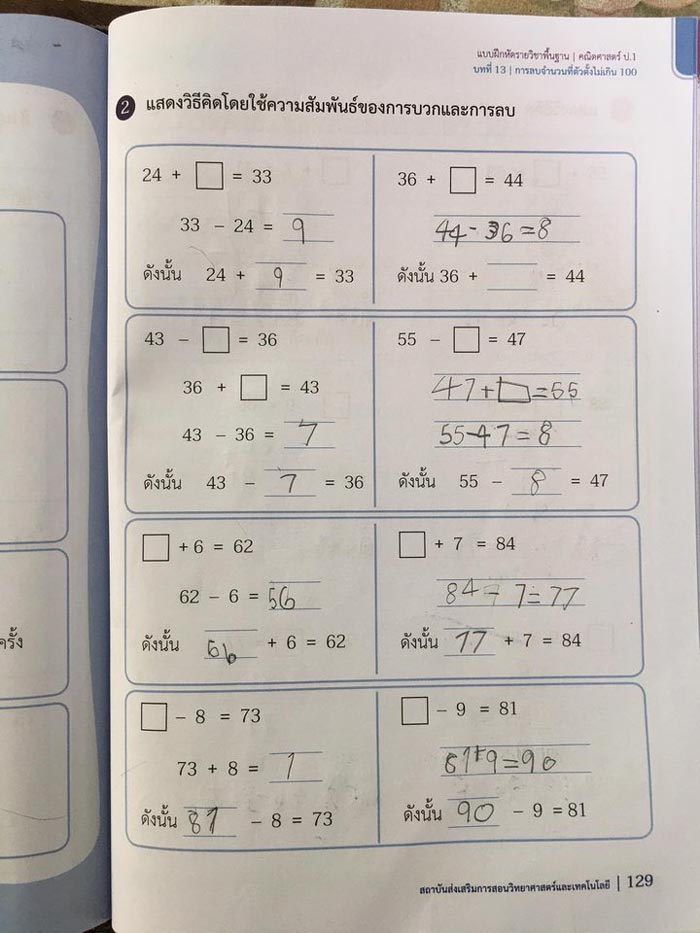 แบบฝึกหัดรายวิชาพื้นฐาน | คณิตศาสตร์ ป.1
บทที่ 13 | การลบจำนวนที่ตัวตั้งไม่เกิน 100
2 แสดงวิธีคิดโดยใช้ความสัมพันธ์ของการบวกและการลบ
24 + □ = 33
33 - 24 = 9
ดังนั้น 24 + 9 = 33
36 + □ = 44
44 - 36 = 8
ดังนั้น 36 + ____ = 44
43 - □ = 36
36 + □ = 43
43 - 36 = 7
ดังนั้น 43 - 7 = 36
55 - □ = 47
47 + □ = 55
55 - 47 = 8
ดังนั้น 55 - 8 = 47
□ + 6 = 62
62 - 6 = 56
ดังนั้น 56 + 6 = 62
□ + 7 = 84
84 - 7 = 77
ดังนั้น 77 + 7 = 84
□ - 8 = 73
73 + 8 = 1
ดังนั้น 81 - 8 = 73
□ - 9 = 81
81 + 9 = 90
ดังนั้น 90 - 9 = 81
ครั้ง
สถาบันส่งเสริมการสอนวิทยาศาสตร์และเทคโนโลยี | 129